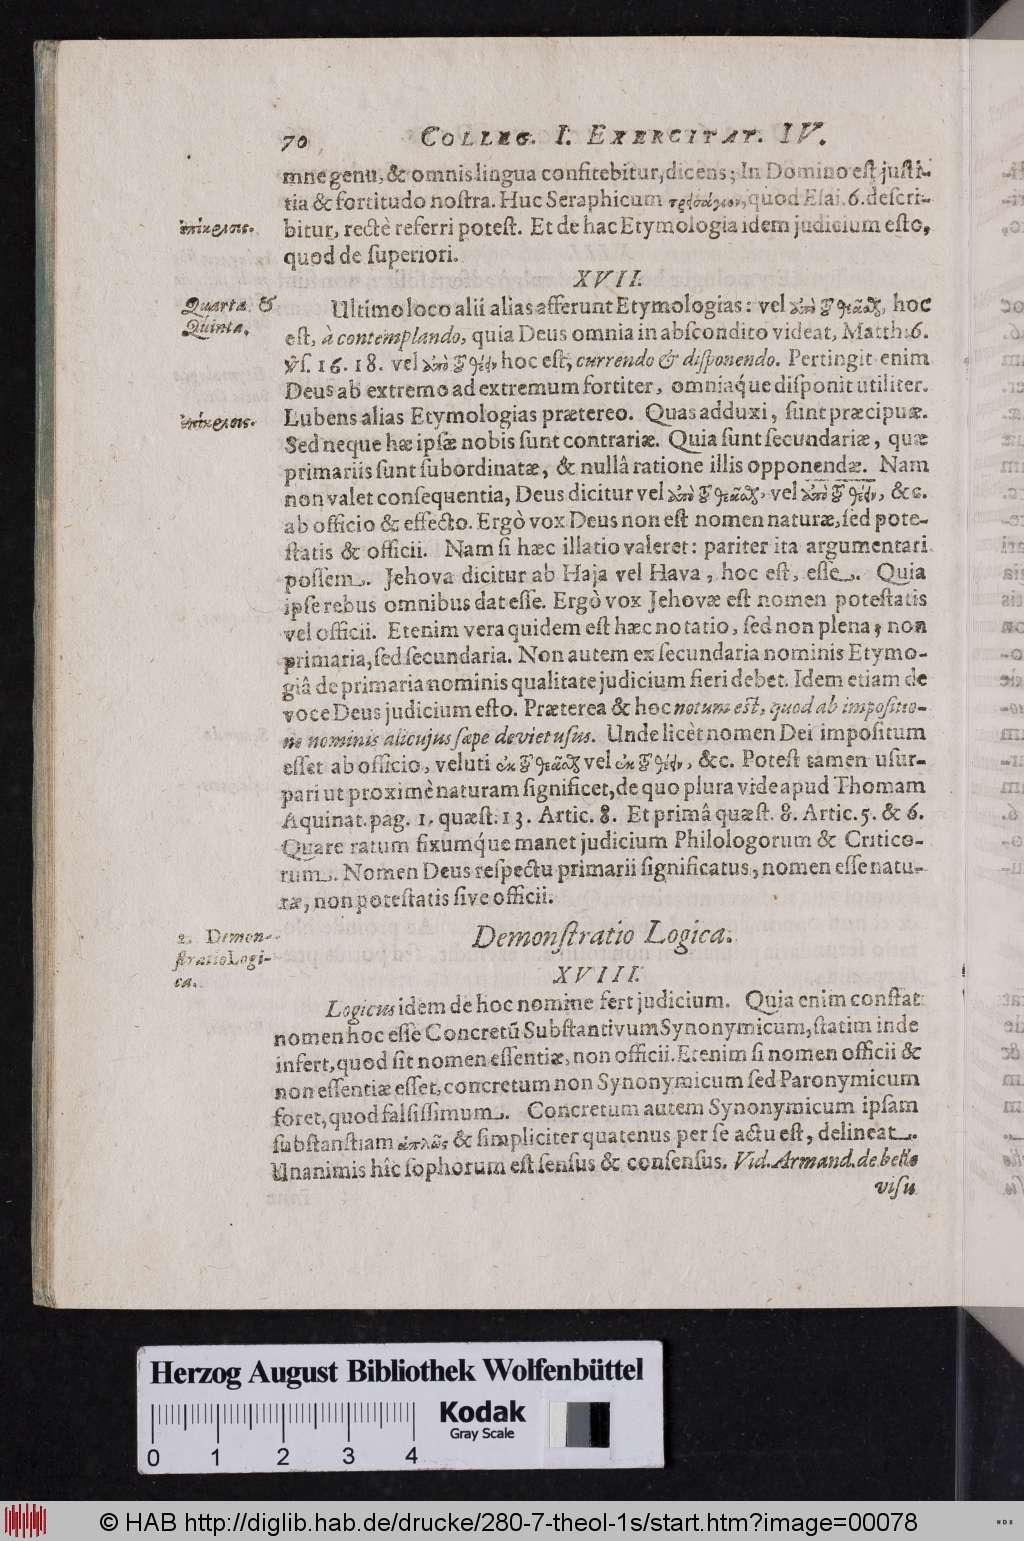 70 COLLEG. I. EXERCITAT. IV.
mne genu, & omnis lingua confitebitur, dicens; In Domino est justi-
tia & fortitudo nostra. Huc Seraphicum τρισάγιον, quod Esai. 6. descri-
ἐπίκρισις.
bitur, rectè referri potest. Et de hac Etymologia idem judicium esto,
quod de superiori.
XVII.
Quarta &
Quinta.
Ultimo loco alii alias afferunt Etymologias: vel ἀπὸ τοῦ θεᾶσθαι, hoc
est, à contemplando, quia Deus omnia in abscondito videat, Matth. 6.
vs. 16. 18. vel ἀπὸ τοῦ θέειν hoc est, currendo & disponendo. Pertingit enim
Deus ab extremo ad extremum fortiter, omniaque disponit utiliter.
ἐπίκρισις.
Lubens alias Etymologias prætereo. Quas adduxi, sunt præcipuæ.
Sed neque hæ ipsæ nobis sunt contrariæ. Quia sunt secundariæ, quæ
primariis sunt subordinatæ, & nullâ ratione illis opponendæ. Nam
non valet consequentia, Deus dicitur vel ἀπὸ τοῦ θεᾶσθαι, vel ἀπὸ τοῦ θέειν, &c.
ab officio & effecto. Ergò vox Deus non est nomen naturæ, sed pote-
statis & officii. Nam si hæc illatio valeret: pariter ita argumentari
possem. Jehova dicitur ab Haja vel Hava, hoc est, esse. Quia
ipse rebus omnibus dat esse. Ergò vox Jehovæ est nomen potestatis
vel officii. Etenim vera quidem est hæc notatio, sed non plena, non
primaria, sed secundaria. Non autem ex secundaria nominis Etymo-
giâ de primaria nominis qualitate judicium fieri debet. Idem etiam de
voce Deus judicium esto. Præterea & hoc notum est, quod ab impositio-
ne nominis alicujus sæpe deviet usus. Unde licèt nomen Dei impositum
esset ab officio, veluti ἐκ τοῦ θεᾶσθαι vel ἐκ τοῦ θέειν, &c. Potest tamen usur-
pari ut proximè naturam significet, de quo plura vide apud Thomam
Aquinat. pag. 1. quæst. 13. Artic. 8. Et primâ quæst. 8. Artic. 5. & 6.
Quare ratum fixumq́ue manet judicium Philologorum & Critico-
rum. Nomen Deus respectu primarii significatus, nomen esse natu-
ræ, non potestatis sive officii.
2. Demon-
stratio Logi-
ca.
Demonstratio Logica.
XVIII.
Logicus idem de hoc nomine fert judicium. Quia enim constat
nomen hoc esse Concretū Substantivum Synonymicum, statim inde
infert, quod sit nomen essentiæ, non officii. Etenim si nomen officii &
non essentiæ esset, concretum non Synonymicum sed Paronymicum
foret, quod falsissimum. Concretum autem Synonymicum ipsam
substanstiam ἁπλῶς & simpliciter quatenus per se actu est, delineat.
Unanimis hîc sophorum est sensus & consensus. Vid. Armand. de bello
visu
Herzog August Bibliothek Wolfenbüttel
Kodak
Gray Scale
0 1 2 3 4
© HAB http://diglib.hab.de/drucke/280-7-theol-1s/start.htm?image=00078